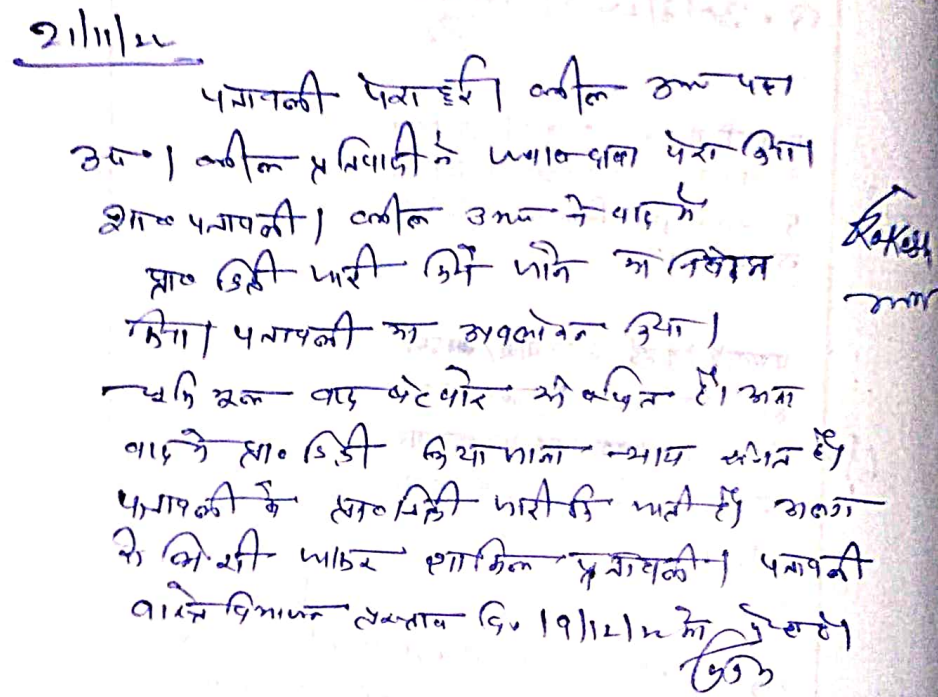 21/11/22
पत्रावली पेश हुई। वकील उभय पक्ष
उप०। वकील प्रतिवादी ने जवाबदावा पेश किया।
शा० पत्रावली। वकील उभय ने वाद में
प्रा० डिक्री जारी किये जाने का निवेदन
किया। पत्रावली का अवलोकन किया।
चूंकि मूल वाद बंटवारे से संबंधित है। अतः
वाद में प्रा० डिक्री किया जाना न्याय संगत है।
पत्रावली में प्रा० डिक्री जारी कि जाती है। अलग
से डिक्री जाकर शामिल पत्रावली। पत्रावली
वास्ते विभाजन प्रस्ताव दि० 19/12/22 को पेश हो।
Rakesh